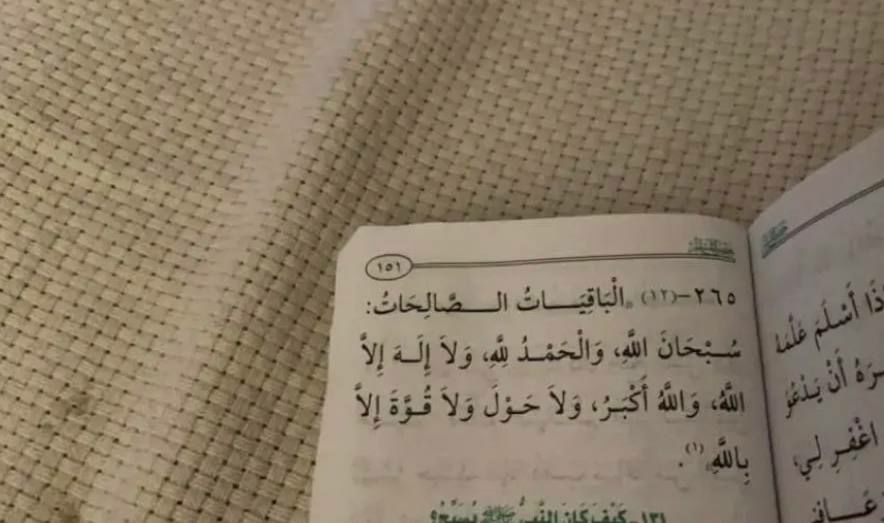 ١٥١
٢٦٥-(١٢) «الْبَاقِيَـــاتُ الـــصَّالِحَاتُ:
سُبْحَانَ اللَّهِ، وَالْحَمْـدُ لِلَّهِ، وَلاَ إِلَـهَ إِلاَّ
اللَّهُ، وَاللَّهُ أَكْبَـرُ، وَلاَ حَـوْلَ وَلاَ قُـوَّةَ إِلاَّ
بِاللَّهِ»(١).
١٣١-كَيْفَ كَانَ النَّبِيُّ ﷺ يُسَبِّحُ؟
ذَا أَسْلَمَ عَلَّمَهُ
أَنْ يَدْعُوَ
اغْفِرْ لِي،